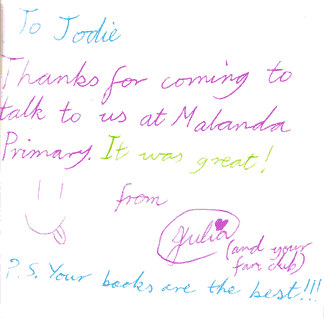 To Jodie
Thanks for coming to
talk to us at Malanda
Primary. It was great!
from
Julia
(and your
fan club)
P.S. Your books are the best!!!